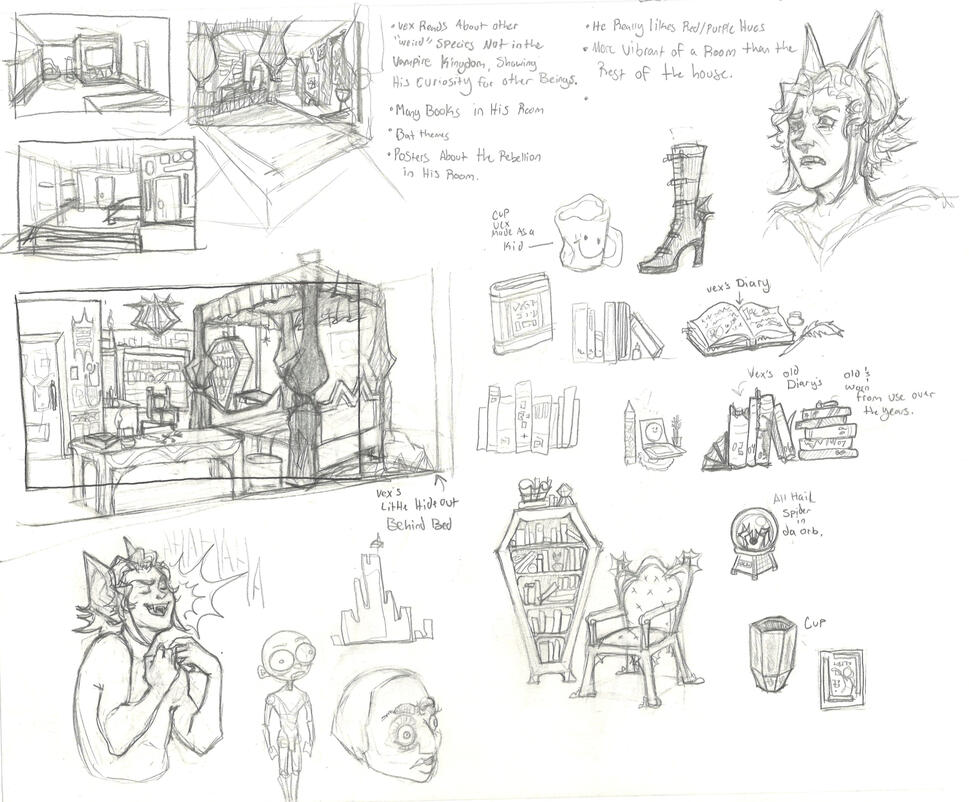 • Vex Reads About other
"weird" Species Not in the
Vampire Kingdom, Showing
His Curiosity for other Beings.
• Many Books in His Room
• Bat themes
• Posters About the Rebellion
in His Room.
• He Really likes Red/Purple Hues
• More Vibrant of a Room than the
Rest of the house.
•
CUP
Vex
Made As a
Kid
Vex's Diary
Vex's old
Diary's
old &
worn
from use over
the years.
Vex's
Little Hideout
Behind Bed
All Hail
Spider
in
da orb.
Cup
HAHAHAHA